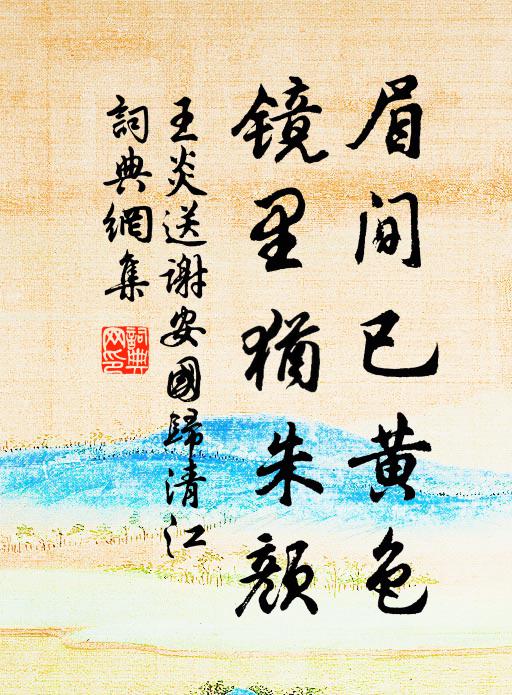 眉间已黄色
镜里犹朱颜
王炎送谢安國歸清江
詞典網集
詞典網印